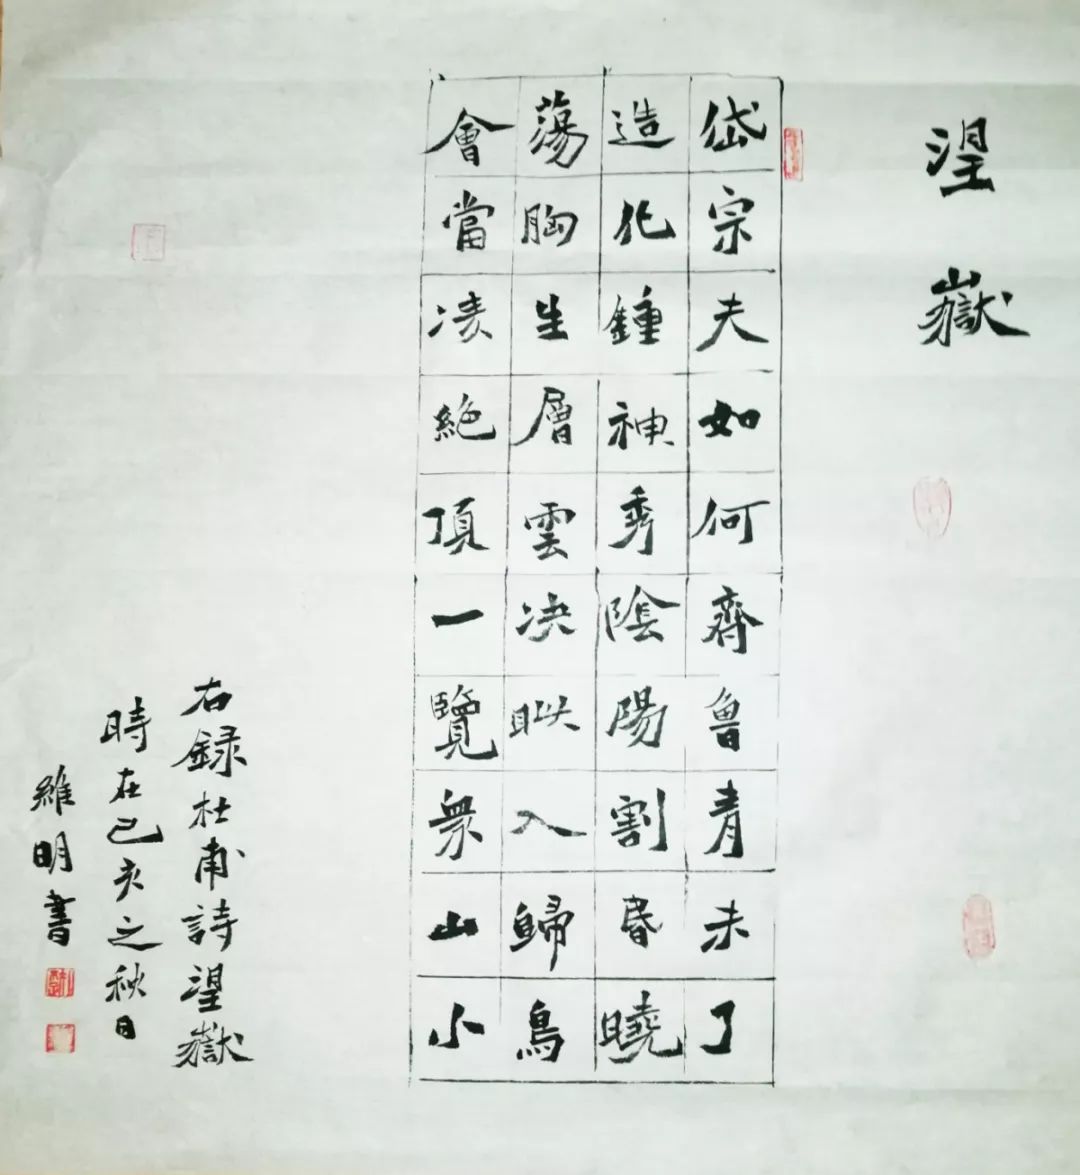 望嶽
岱宗夫如何齊魯青未了
造化鍾神秀陰陽割昏曉
蕩胸生層雲决眦入歸鳥
會當凌絶頂一覽衆山小
右録杜甫詩望嶽
時在己亥之秋日
維明書